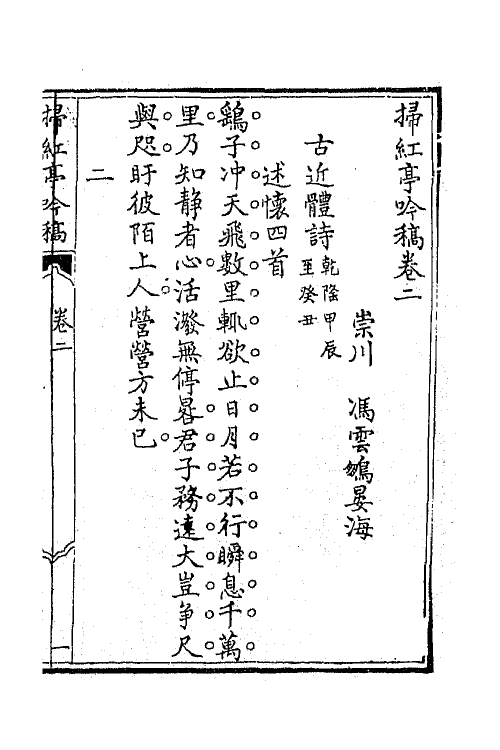 掃紅亭吟稿卷二
崇川　馮雲鵷晏海
古近體詩乾隆甲辰至癸丑
述懷四首
鷂子冲天飛數里輒欲止日月若不行瞬息千萬
里乃知靜者心活潑無停晷君子務遠大豈爭尺
與咫盱彼陌上人營營方未已
二
掃紅亭吟稿
卷二
一